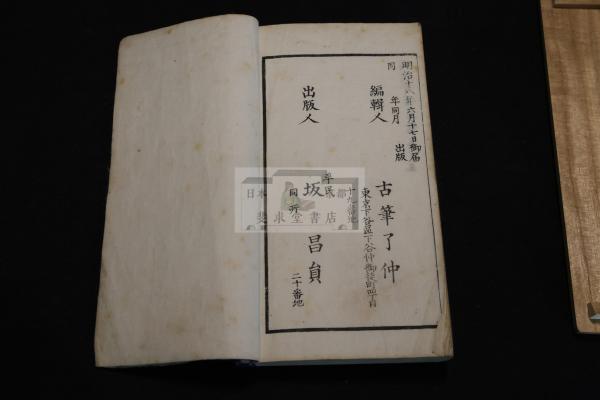 明治十六年六月十七日御届
同 年同月 出版
編輯人 古筆了仲
東京下谷區下谷仲御徒町四丁目
十九番地
出版人 平民 坂 昌員
同所 二十番地
日本 京都
斐求堂書店